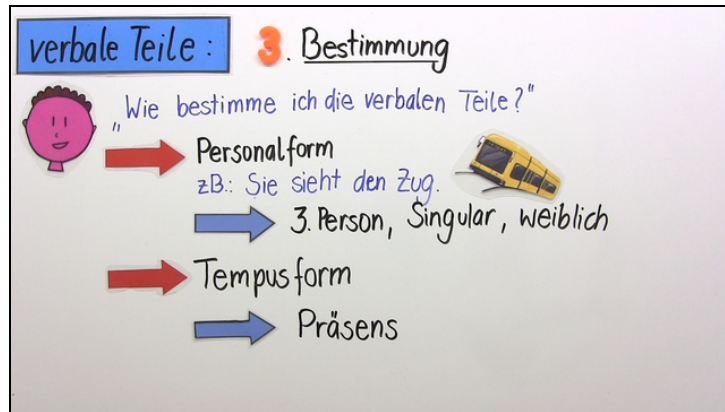 verbale Teile: 3. Bestimmung
„Wie bestimme ich die verbalen Teile?"
Personalform
zB.: Sie sieht den Zug.
3. Person, Singular, weiblich
Tempusform
Präsens